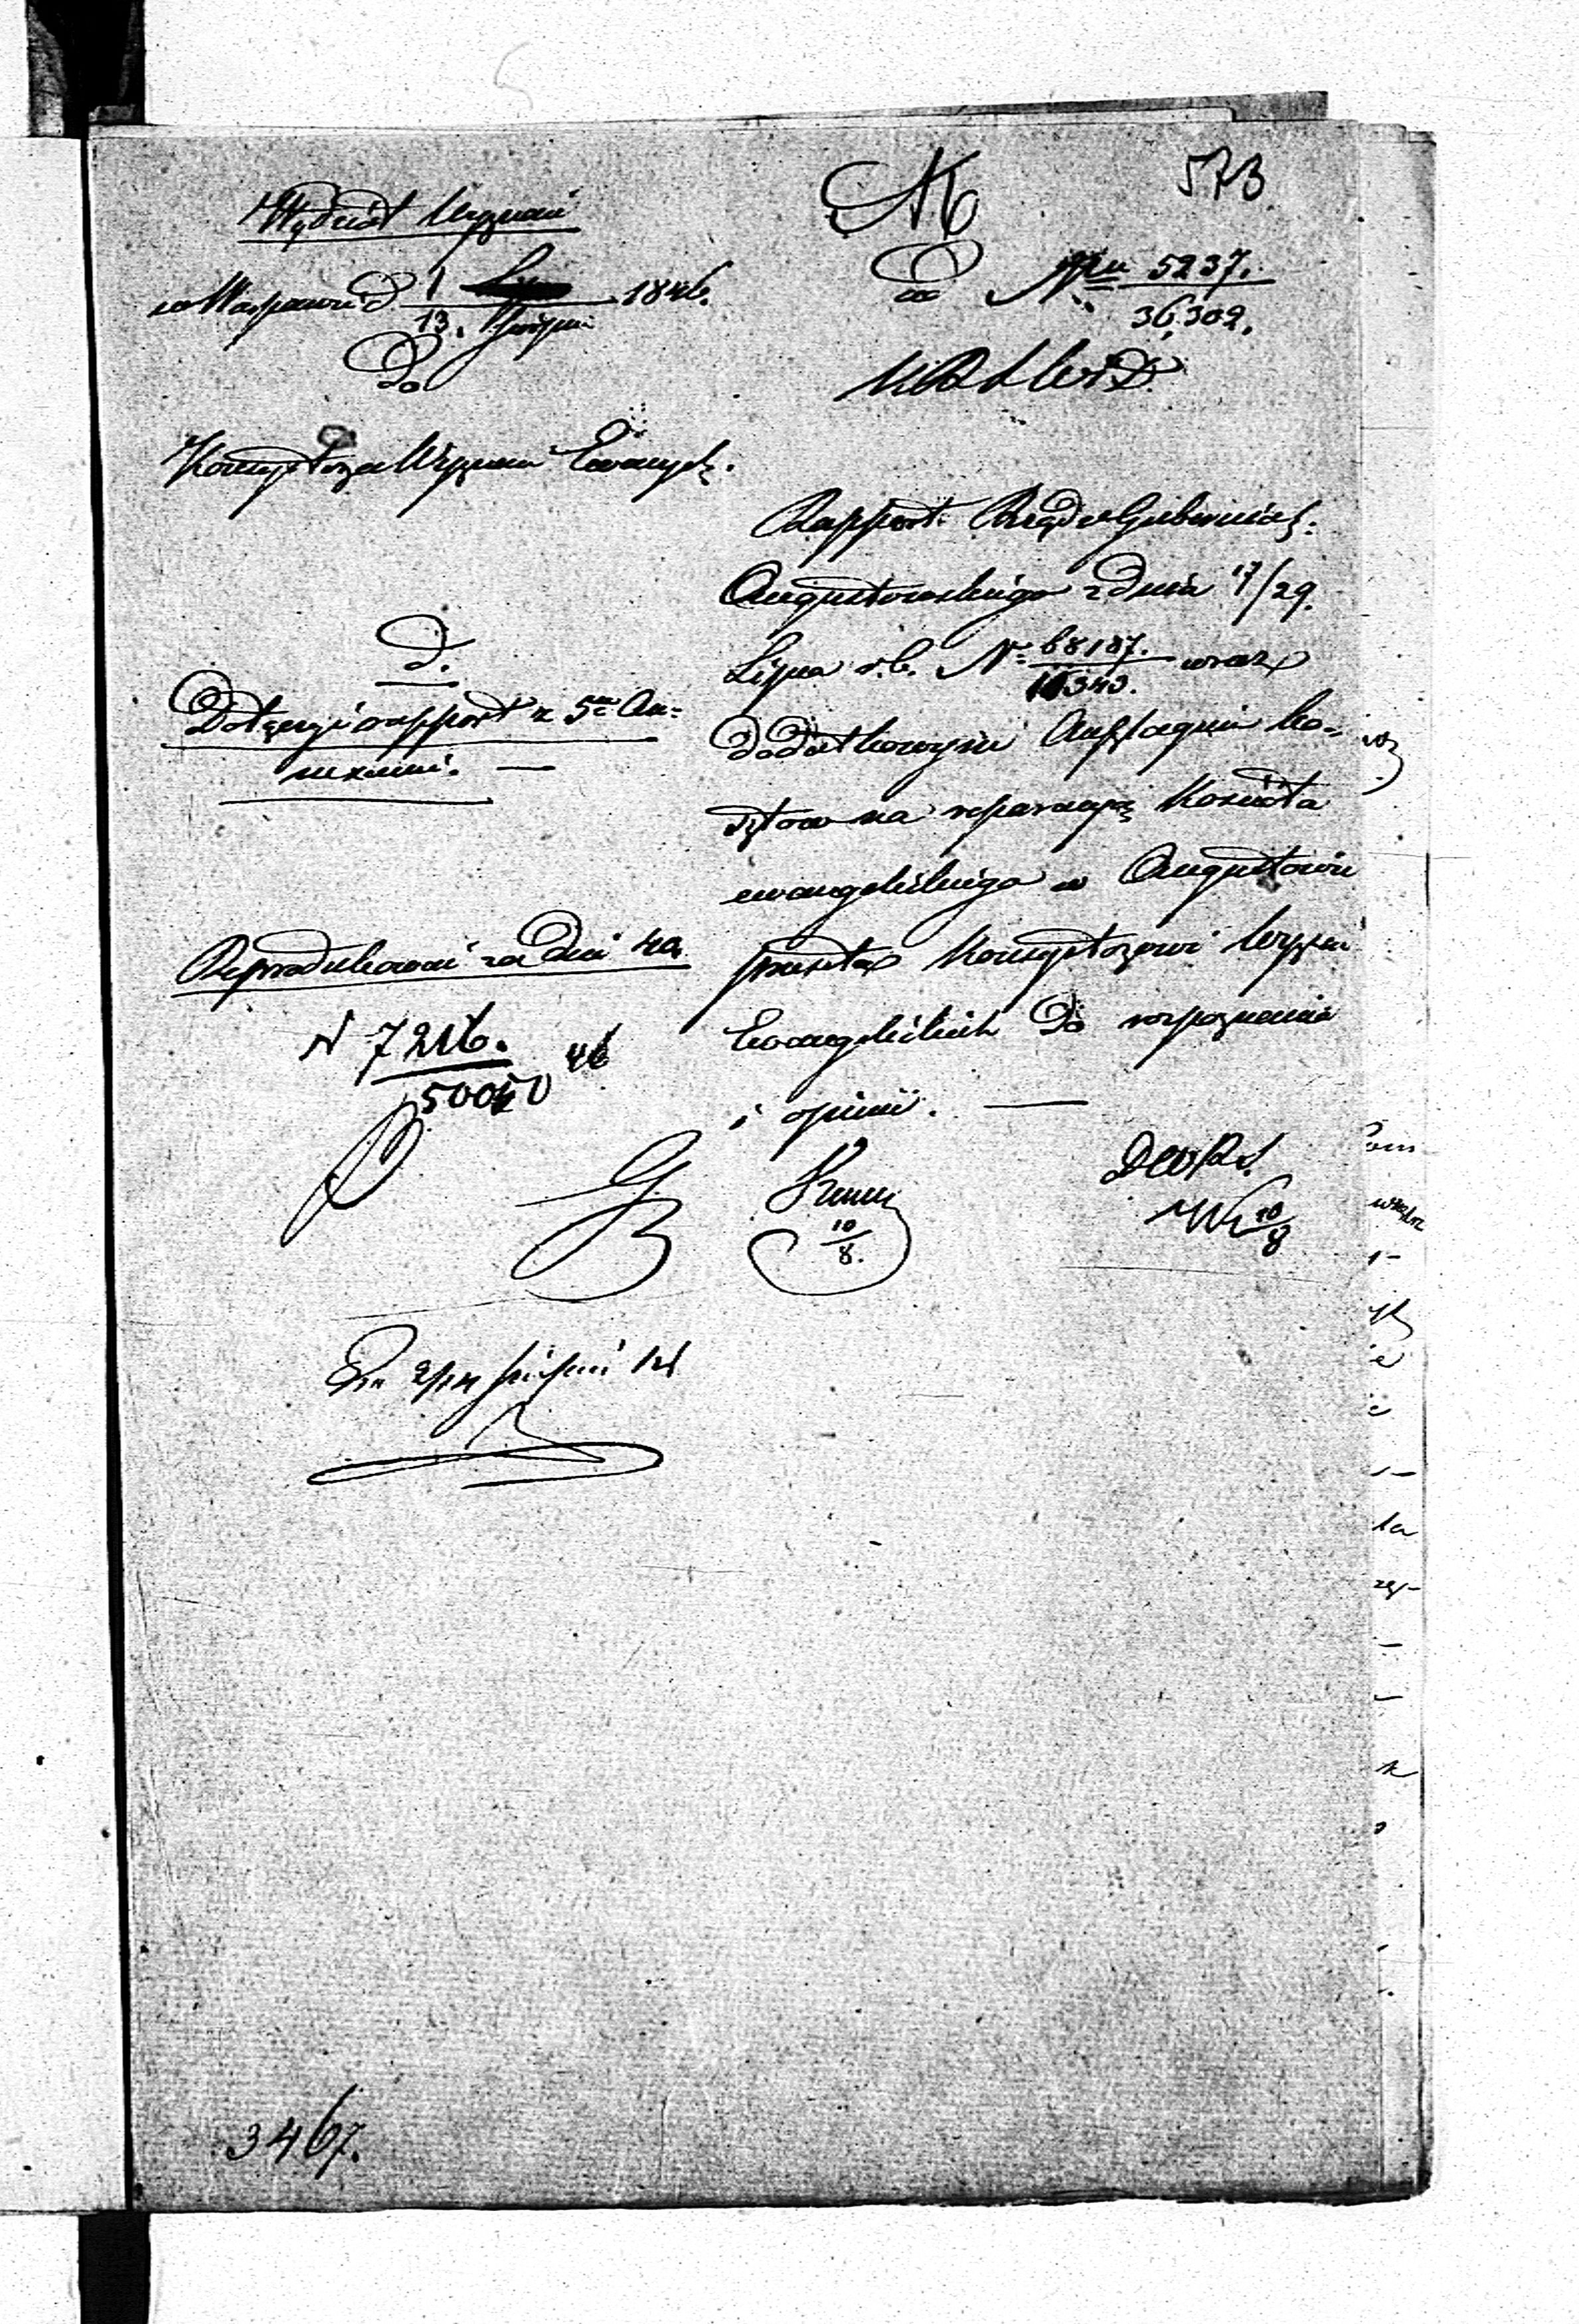 573
Wydział Wyznań
w Warszawie d. 1/13. Sierpnia 1846.
Do
do Nru 5237./36,302.
KRSWiD.
Konsystorza Wyznań Ewangel:
Rapport Rządu Gubernial:
Augustowskiego z dnia 17/29.
Lipca r. b. Nº 68187./11343. wraz z
dodatkowym Anszlagiem ko-
sztów na reparacyą Kościoła
ewangelickiego w Augustowie
przesyła Konsystorzowi Wyzna:
Ewangelickich do rozpoznania
i opinii. —
D.
Dołączyć rapport z 5ciu An-
nexami. —
Reprodukować za Dni 40.
N 7216./50050 46
DWRS.
10/8.
10/8
3467.